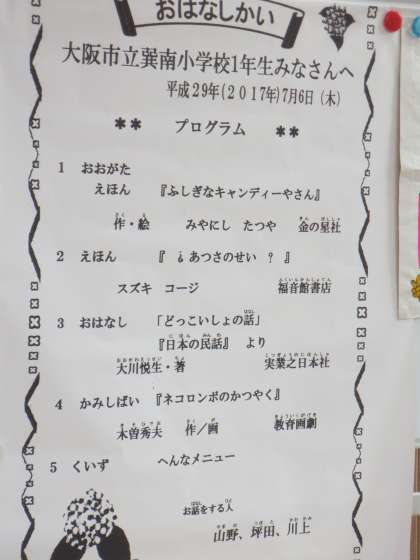 おはなしかい
大阪市立巽南小学校1年生みなさんへ
平成29年(2017年)7月6日 (木)
** プログラム **
1 おおがた
えほん 『ふしぎなキャンディーやさん』
作・絵 みやにし たつや 金の星社
2 えほん 『 ¿ あつさのせい ? 』
スズキ コージ 福音館書店
3 おはなし 「どっこいしょの話」
『日本の民話』 より
大川悦生・著 実業之日本社
4 かみしばい 『ネコロンボのかつやく』
木曽秀夫 作/画 教育画劇
5 くいず へんなメニュー
お話をする人
山野、坪田、川上